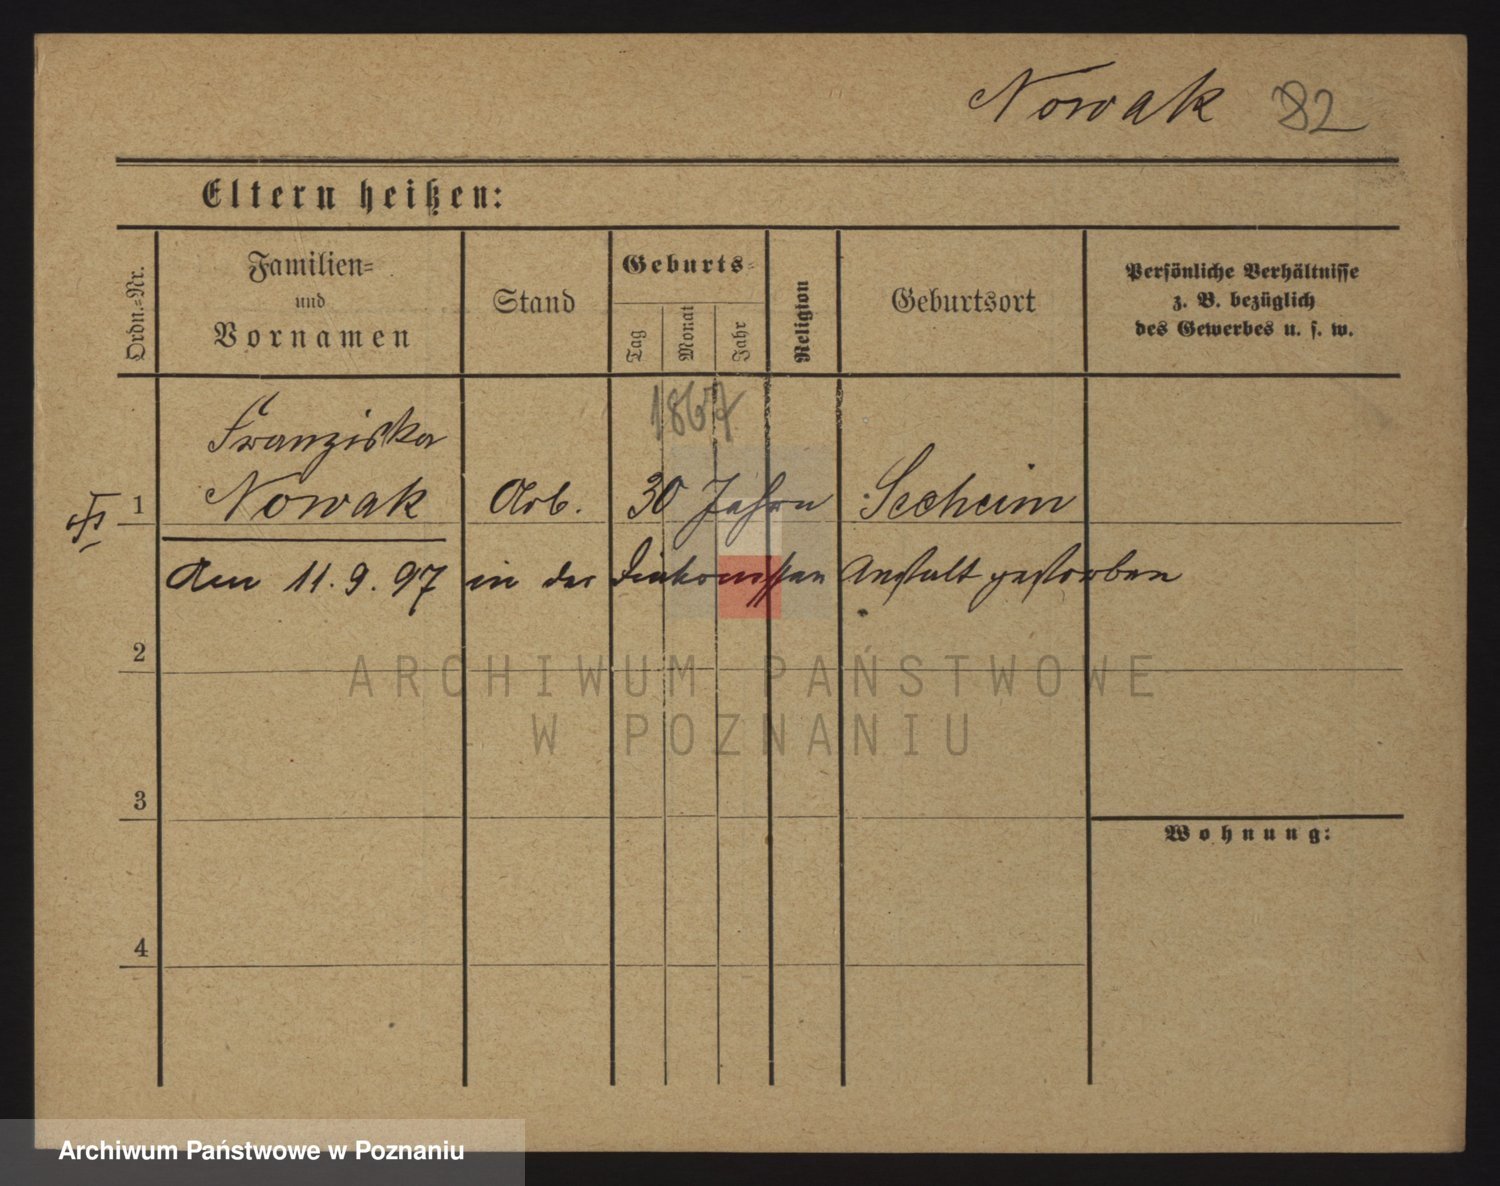 Nowak 82
Eltern heißen:
Ordn.=Nr.
Familien=
und
Vornamen
Stand
Geburts=
Tag
Monat
Jahr
Religion
Geburtsort
Persönliche Verhältnisse
z. B. bezüglich
des Gewerbes u. s. w.
1867
Franziska
1 Nowak Arb. 30 Jahre Seeheim
den 11.9.97 in der Diakonissen Anstalt gestorben
2
ARCHIWUM PAŃSTWOWE
W POZNANIU
3
Wohnung:
4
Archiwum Państwowe w Poznaniu